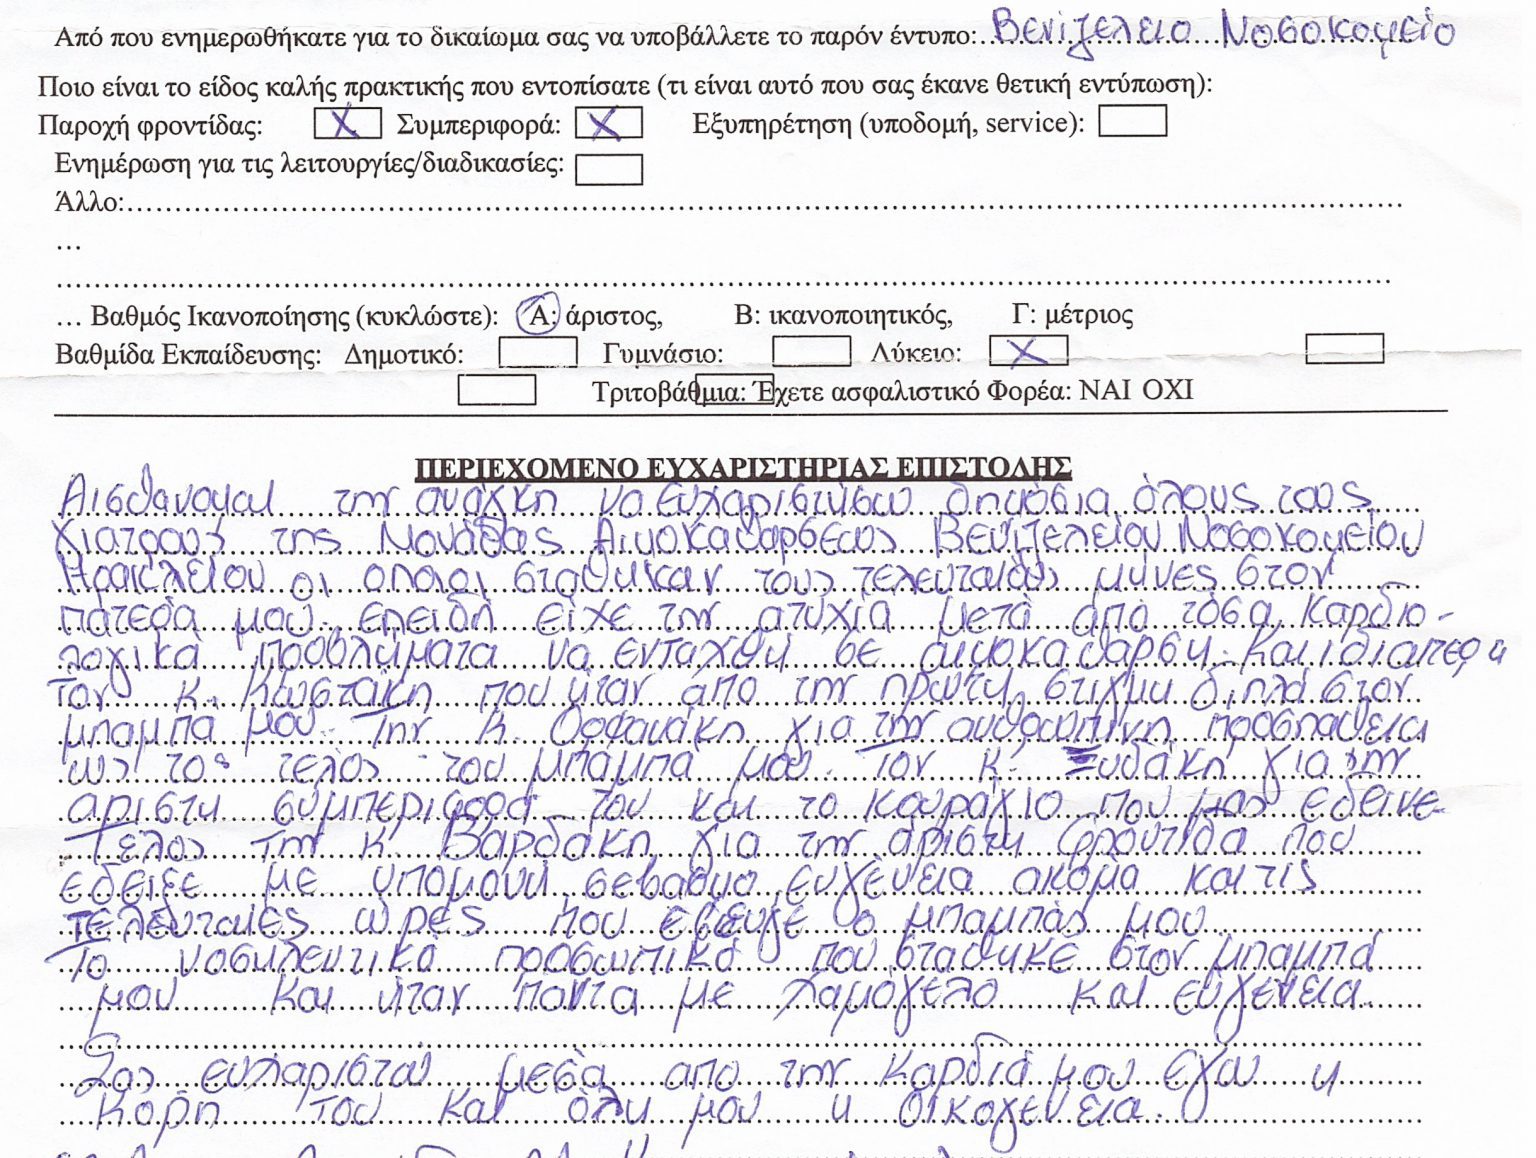 Από που ενημερωθήκατε για το δικαίωμα σας να υποβάλλετε το παρόν έντυπο:...Βενιζελειο Νοσοκομείο
Ποιο είναι το είδος καλής πρακτικής που εντοπίσατε (τι είναι αυτό που σας έκανε θετική εντύπωση):
Παροχή φροντίδας: X Συμπεριφορά: X Εξυπηρέτηση (υποδομή, service):
Ενημέρωση για τις λειτουργίες/διαδικασίες:
Άλλο:
…
… Βαθμός Ικανοποίησης (κυκλώστε): Α: άριστος, Β: ικανοποιητικός, Γ: μέτριος
Βαθμίδα Εκπαίδευσης: Δημοτικό: Γυμνάσιο: Λύκειο: X
Τριτοβάθμια: Έχετε ασφαλιστικό Φορέα: ΝΑΙ ΟΧΙ
ΠΕΡΙΕΧΟΜΕΝΟ ΕΥΧΑΡΙΣΤΗΡΙΑΣ ΕΠΙΣΤΟΛΗΣ
Αισθανομαι την ανάγκη να ευχαριστήσω δημόσια όλους τους
γιατρους της Μονάδας Αιμοκαθαρσεως Βενιζελείου Νοσοκομείου
Ηρακλείου οι οποιοι σταθηκαν τους τελευταίους μήνες στον
πατερα μου επειδή είχε την ατυχία μετά από τόσα καρδιο-
λογικά προβλήματα να ενταχθή σε αιμοκαθαρση. και ιδιαιτερα
τον κ. Κωστάκη που ηταν από την πρωτη στιγμη διπλα στον
μπαμπα μου. Την κ. Ορφανάκη για την ανθρωπινη προσπαθεια
ως το τελος του μπαμπά μου. Τον κ. Ξυδάκη για την
αριστη συμπεριφορα του και το κουράγιο που μας εδεινε.
Τέλος την κ. Βαρδάκη για την αριστη φροντιδα που
εδειξε με υπομονη σεβασμο, ευγένεια ακόμα και τις
τελευταιες ώρες που εφευγε ο μπαμπάς μου
Το νοσηλευτικό προσωπικό που σταθηκε στον μπαμπά
μου και ηταν παντα με χαμόγελο και ευγενεια.
Σας ευχαριστω μεσα απο την καρδιά μου εγω η
κορη του και όλη μου η οικογένεια.